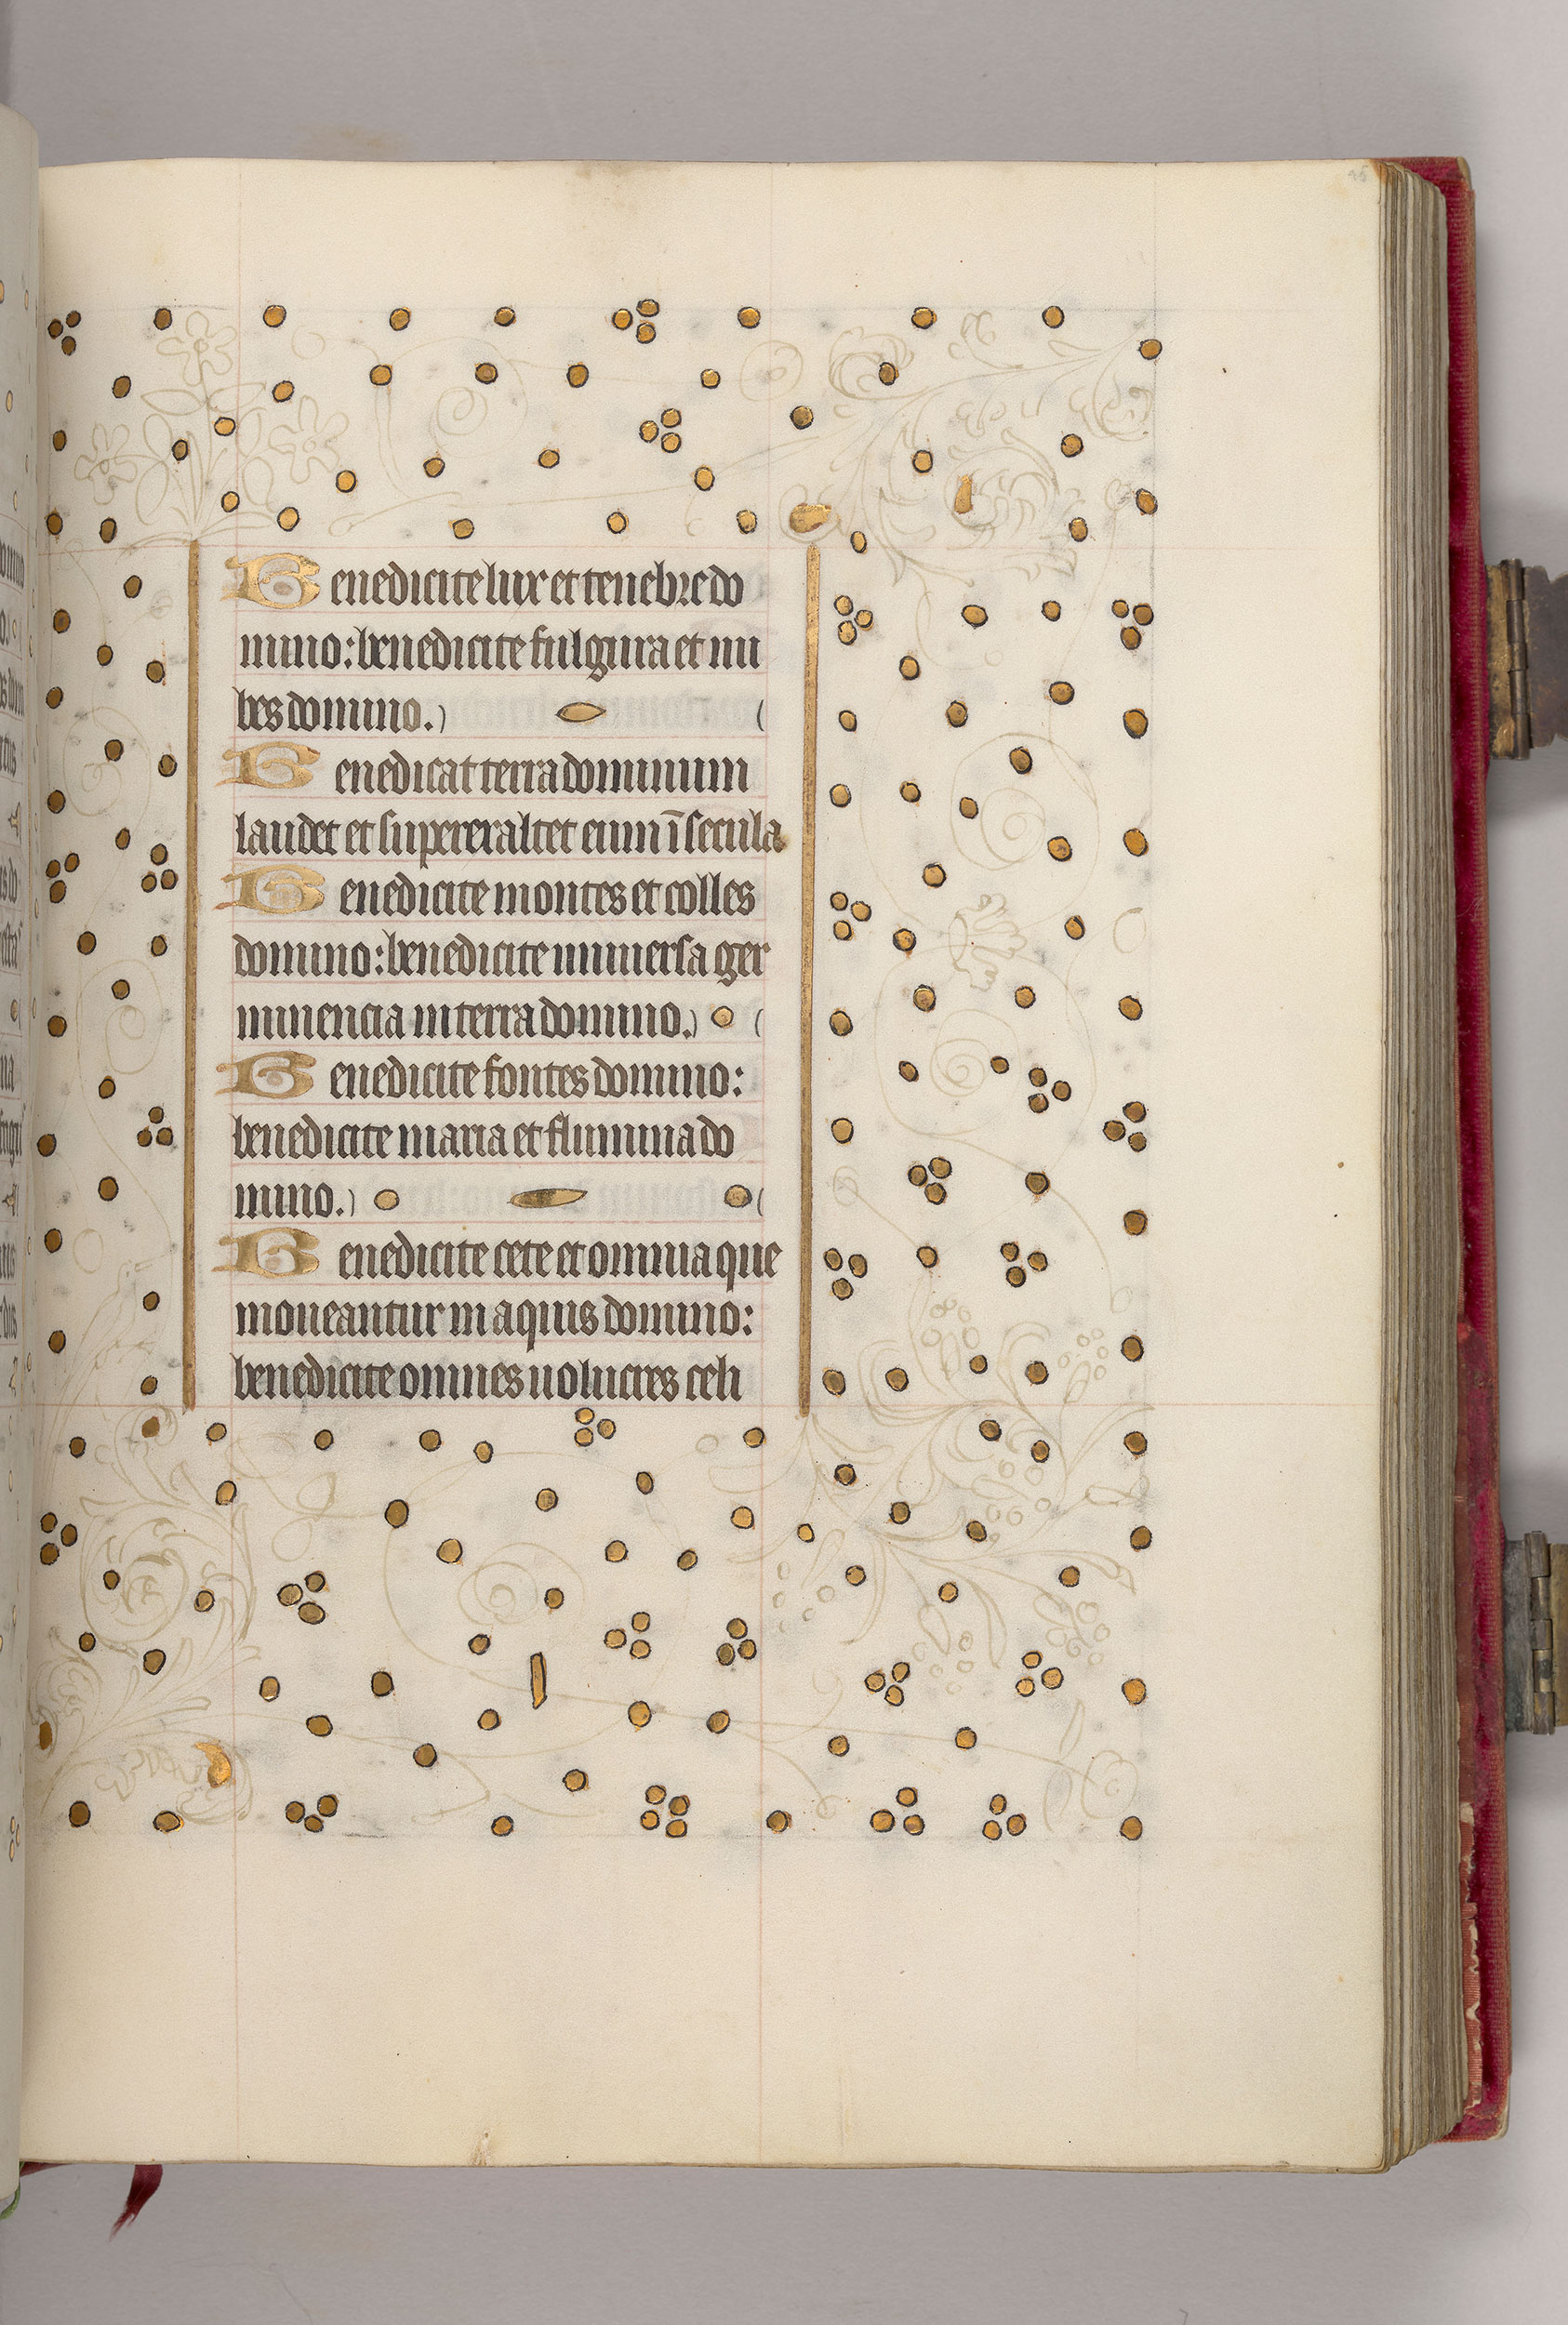 Benedicite lux et tenebre do
mino: benedicite fulgura et nu
bes domino.
Benedicat terra dominum
laudet et superexaltet eum ī secula
Benedicite montes et colles
domino: benedicite uniuersa ger
minencia in terra domino.
Benedicite fontes domino:
benedicite maria et flumina do
mino.
Benedicite cete et omnia que
moueantur in aquis domino:
benedicite omnes uolucres celi